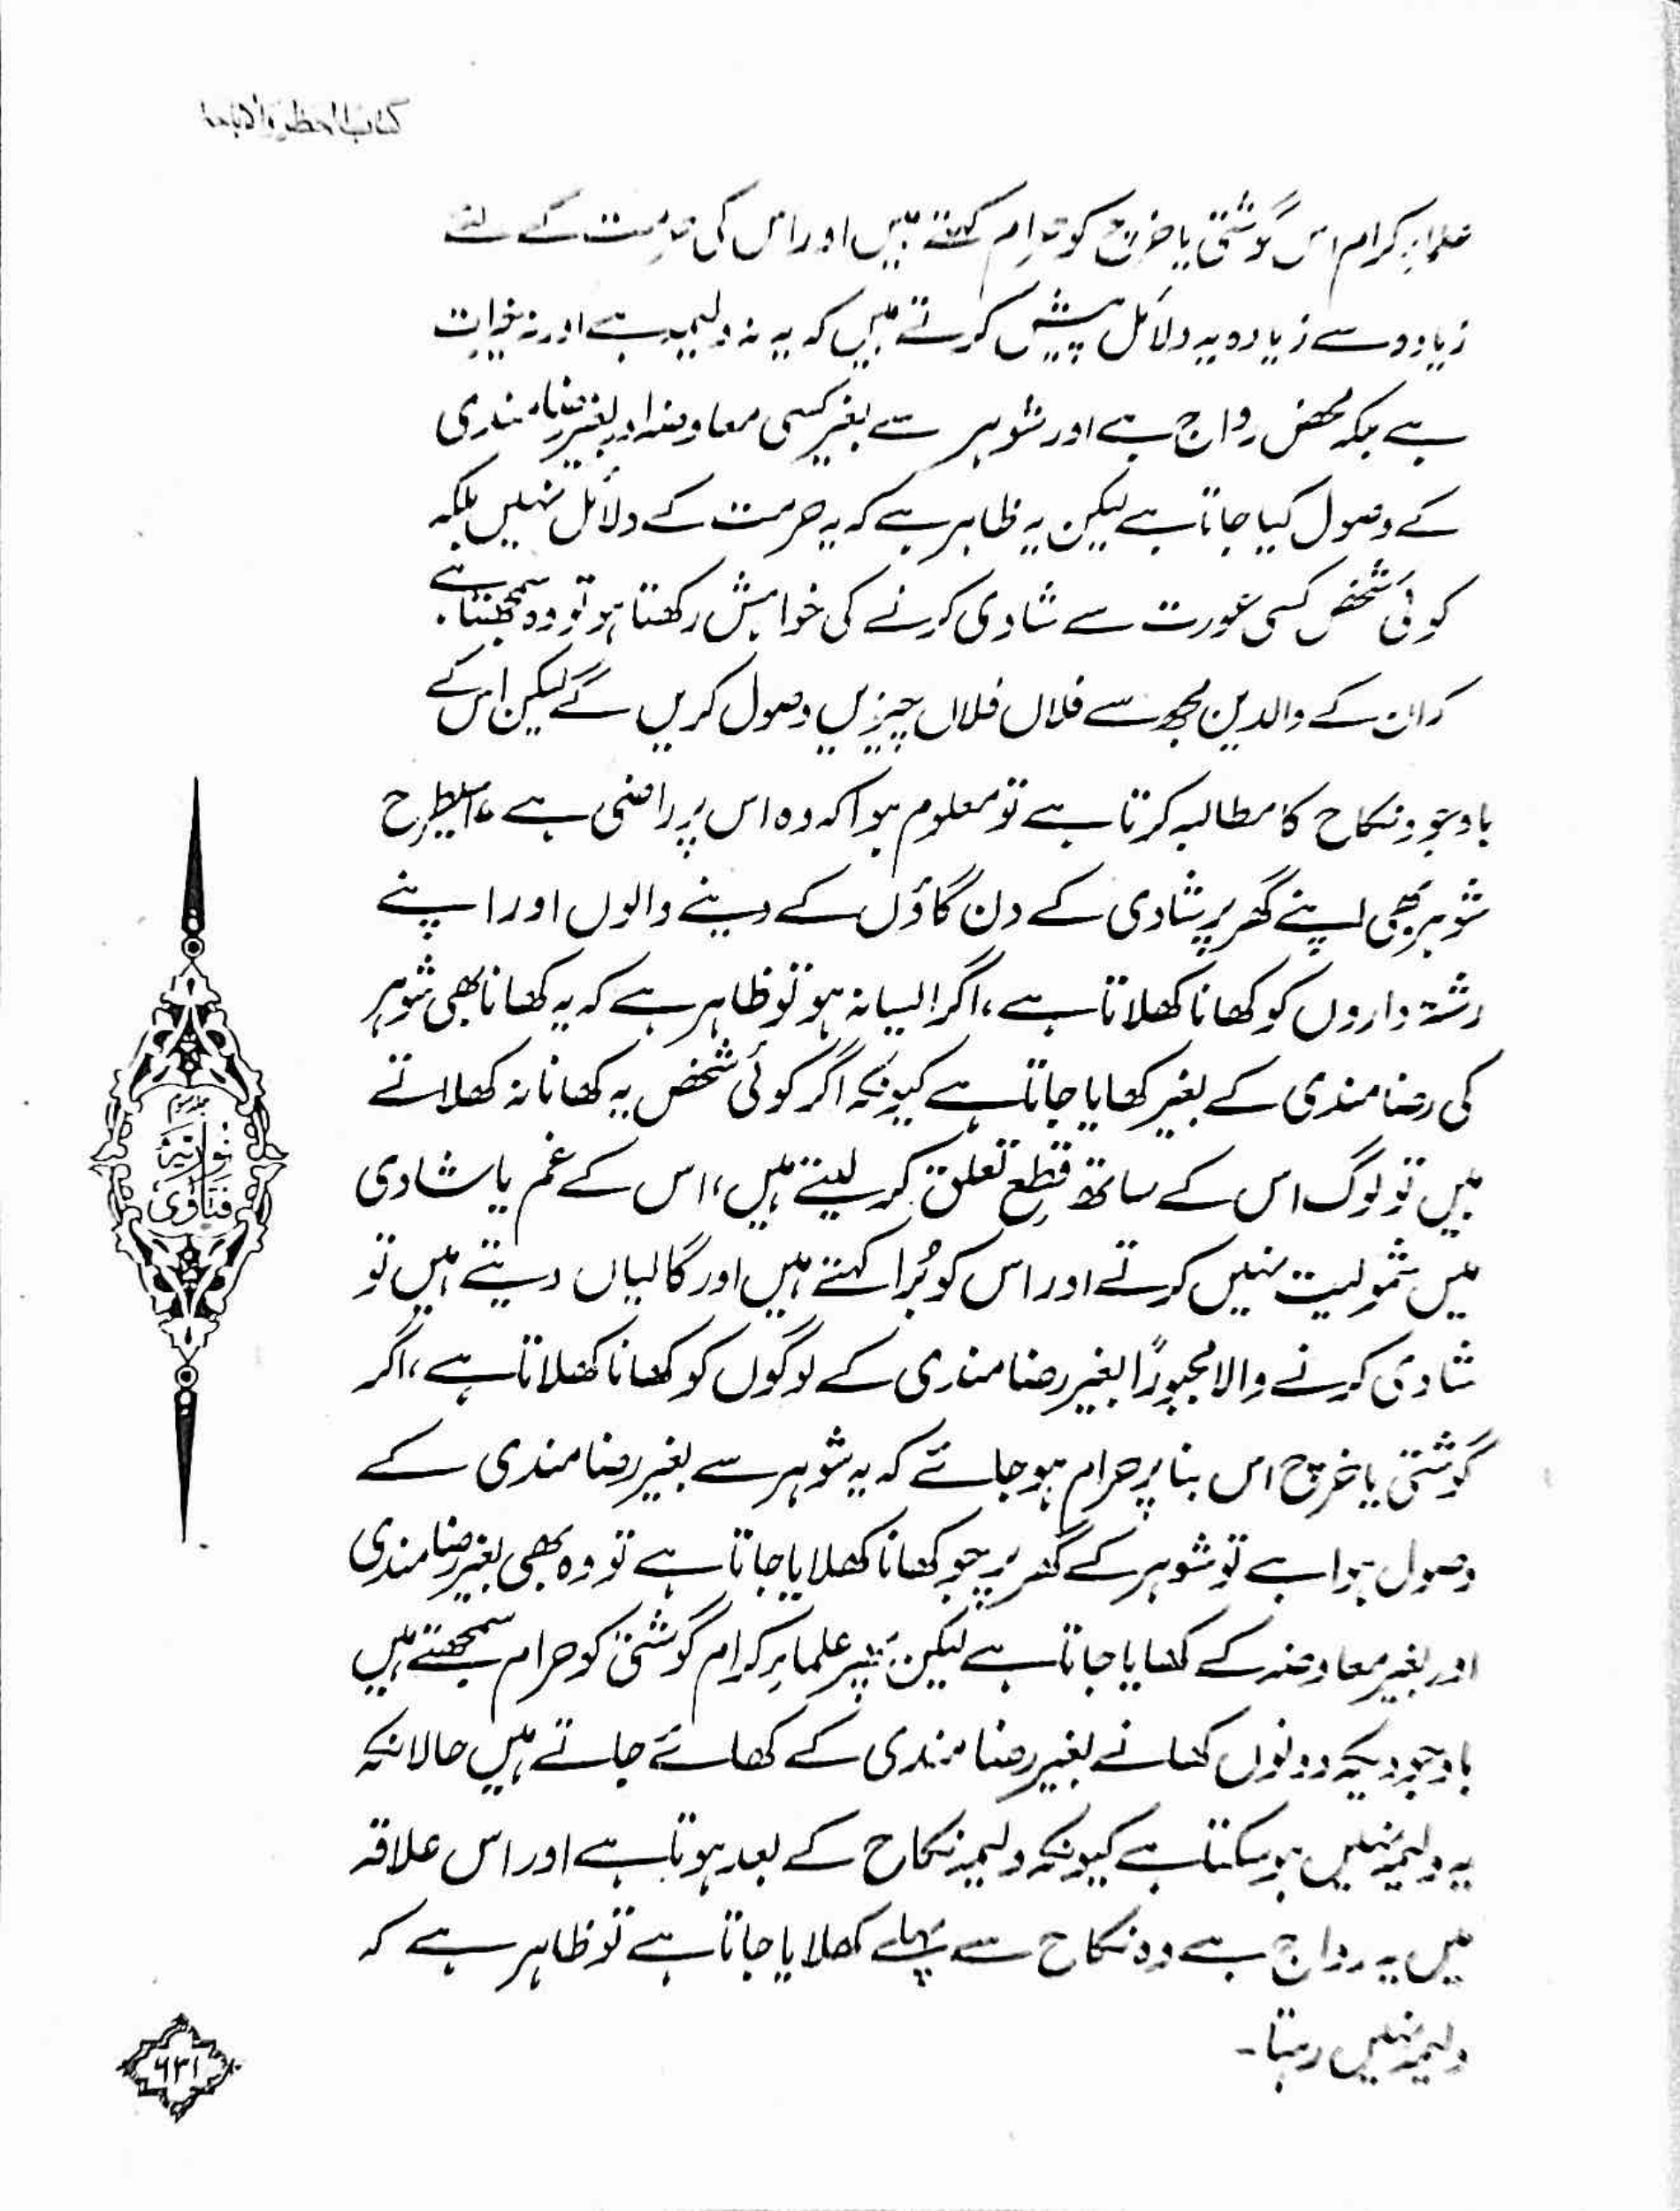 کتاب الحظر والاباحۃ
علماءِ کرام اس گوشتی یا خرچ کو حرام کہتے ہیں اور اس کی حرمت کے لئے
زیادہ سے زیادہ یہ دلائل پیش کرتے ہیں کہ یہ نہ ولیمہ ہے اور نہ خیرات
ہے بلکہ محض رواج ہے اور شوہر سے بغیر کسی معاوضہ اور بغیر رضامندی
کے وصول کیا جاتا ہے لیکن یہ ظاہر ہے کہ یہ حرمت کے دلائل نہیں بلکہ
کوئی شخص کسی عورت سے شادی کرنے کی خواہش رکھتا ہو تو وہ سمجھتا ہے
کہ ان کے والدین مجھ سے فلاں فلاں چیزیں وصول کریں گے لیکن اس کے
باوجود نکاح کا مطالبہ کرتا ہے تو معلوم ہوا کہ وہ اس پر راضی ہے، اسیطرح
شوہر بھی اپنے گھر پر شادی کے دن گاؤں کے دینے والوں اور اپنے
رشتہ داروں کو کھانا کھلاتا ہے، اگر ایسا نہ ہو تو ظاہر ہے کہ یہ کھانا بھی شوہر
کی رضامندی کے بغیر کھایا جاتا ہے کیونکہ اگر کوئی شخص یہ کھانا نہ کھلاتے
ہیں تو لوگ اس کے ساتھ قطع تعلق کر لیتے ہیں، اس کے غم یا شادی
میں شمولیت نہیں کرتے اور اس کو بُرا کہتے ہیں اور گالیاں دیتے ہیں تو
شادی کرنے والا مجبورًا بغیر رضامندی کے لوگوں کو کھانا کھلاتا ہے، اگر
گوشتی یا خرچ اس بنا پر حرام ہو جائے کہ یہ شوہر سے بغیر رضامندی کے
وصول ہوا ہے تو شوہر کے گھر پر جو کھانا کھلایا جاتا ہے تو وہ بھی بغیر رضامندی
اور بغیر معاوضہ کے کھایا جاتا ہے لیکن پھر علماءِ کرام گوشتی کو حرام سمجھتے ہیں
باوجودیکہ دونوں کھانے بغیر رضامندی کے کھائے جاتے ہیں حالانکہ
یہ ولیمہ نہیں ہو سکتا ہے کیونکہ ولیمہ نکاح کے بعد ہوتا ہے اور اس علاقہ
میں یہ رواج ہے وہ نکاح سے پہلے کھلایا جاتا ہے تو ظاہر ہے کہ
ولیمہ نہیں رہتا۔
فتاوٰی نوریہ
جلد سوم
۶۳۱